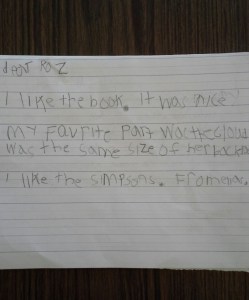 dear Raz
I like the book. It was nice
My favrite part was the cloud
was the same size of her
I like the simpsons. From